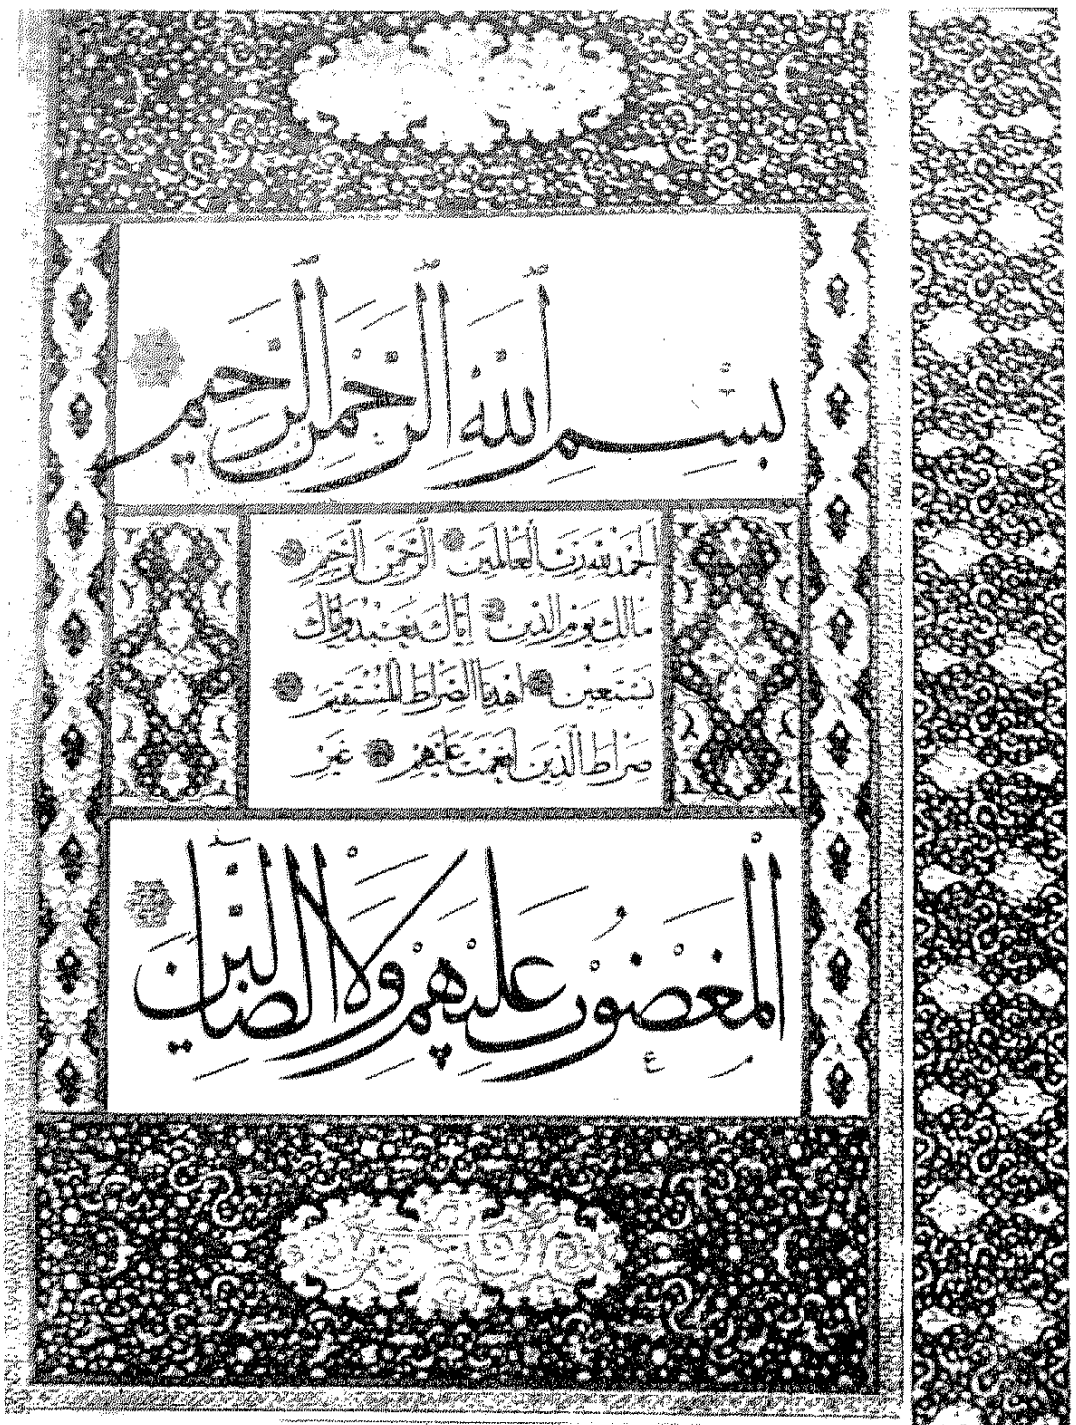 بِسْمِ ٱللَّهِ ٱلرَّحْمٰنِ ٱلرَّحِيمِ
ٱلْحَمْدُ لِلَّهِ رَبِّ ٱلْعَالَمِينَ ٱلرَّحْمٰنِ ٱلرَّحِيمِ
مَالِكِ يَوْمِ ٱلدِّينِ إِيَّاكَ نَعْبُدُ وَإِيَّاكَ
نَسْتَعِينُ اهْدِنَا ٱلصِّرَاطَ ٱلْمُسْتَقِيمَ
صِرَاطَ ٱلَّذِينَ أَنْعَمْتَ عَلَيْهِمْ غَيْرِ
ٱلْمَغْضُوبِ عَلَيْهِمْ وَلَا ٱلضَّآلِّينَ